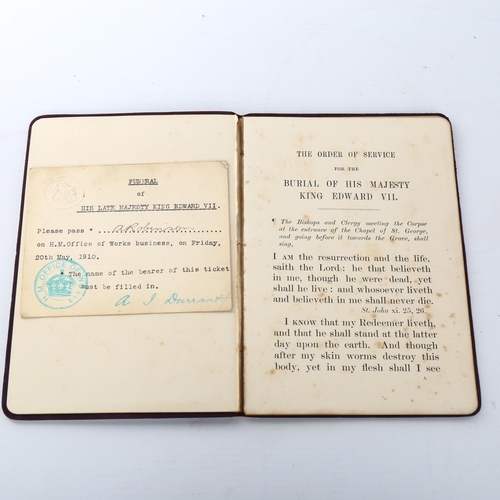 FUNERAL
of
HIS LATE MAJESTY KING EDWARD VII.
Please pass * A Robinson
on H.M.Office of Works business, on Friday,
20th May, 1910.
* The name of the bearer of this ticket
must be filled in.
A J Durrant
H.M. OFFICE
THE ORDER OF SERVICE
FOR THE
BURIAL OF HIS MAJESTY
KING EDWARD VII.
¶ The Bishops and Clergy meeting the Corpse
at the entrance of the Chapel of St. George,
and going before it towards the Grave, shall
sing,
I AM the resurrection and the life,
saith the Lord: he that believeth
in me, though he were dead, yet
shall he live: and whosoever liveth
and believeth in me shall never die.
St. John xi. 25, 26.
I KNOW that my Redeemer liveth,
and that he shall stand at the latter
day upon the earth. And though
after my skin worms destroy this
body, yet in my flesh shall I see
A